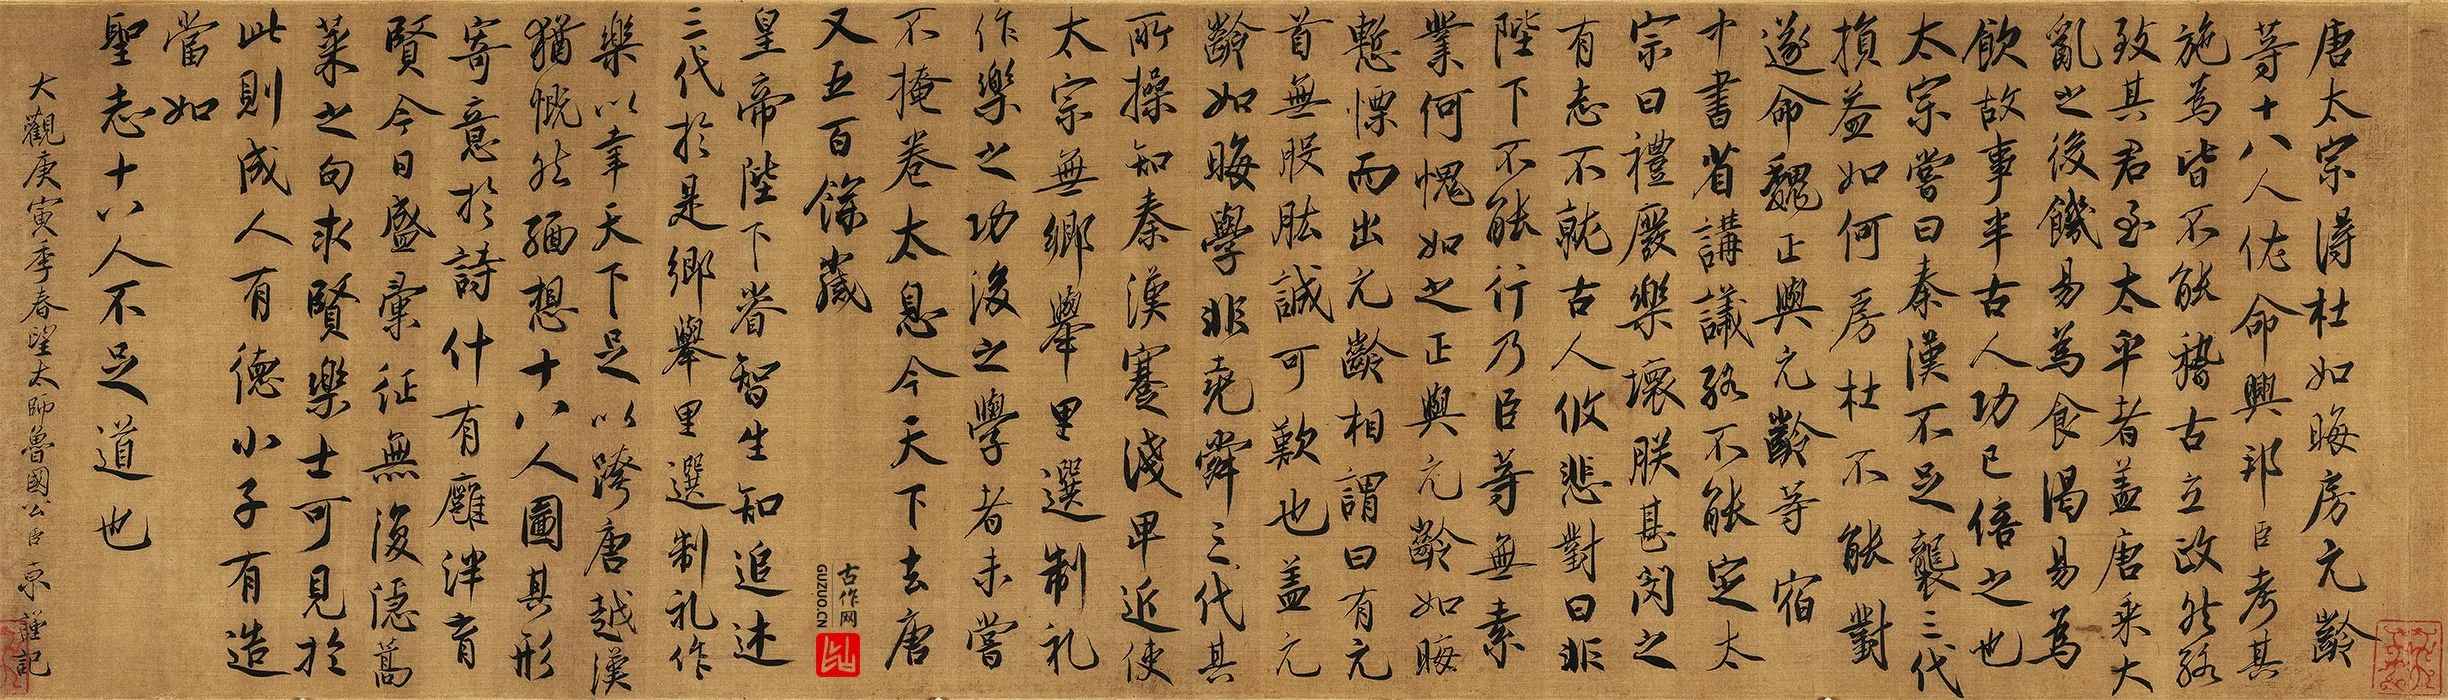 唐太宗得杜如晦房元齡
等十八人佐命興邦臣考其
施為皆不能稽古立政然猶
致其君至太平者蓋唐乘大
亂之後饑易為食渴易為
飲故事半古人功已倍之也
太宗嘗曰秦漢不足襲三代
損益如何房杜不能對
遂命魏正與元齡等宿
中書省講議終不能定太
宗曰禮廢樂壞朕甚閔之
有志不就古人攸悲對曰非
陛下不能行乃臣等無素
業何愧如之正與元齡如晦
慙慄而出元齡相謂曰有元
首無股肱誠可歎也盖元
齡如晦學非堯舜三代其
所操知秦漢蹇淺卑近使
太宗無鄉舉里選制礼
作樂之功後之學者未嘗
不掩卷太息今天下去唐
又五百餘歲
皇帝陛下睿智生知追述
三代於是鄉舉里選制礼作
樂以幸天下足以跨唐越漢
猶慨然緬想十八人圖其形
寄意於詩什有廱泮育
賢今日盛彙征無復隱蒿
萊之句求賢樂士可見於
此則成人有德小子有造
當如
聖志十八人不足道也
大觀庚寅季春望太師魯國公臣京謹記
古作网
GUZUO.CN